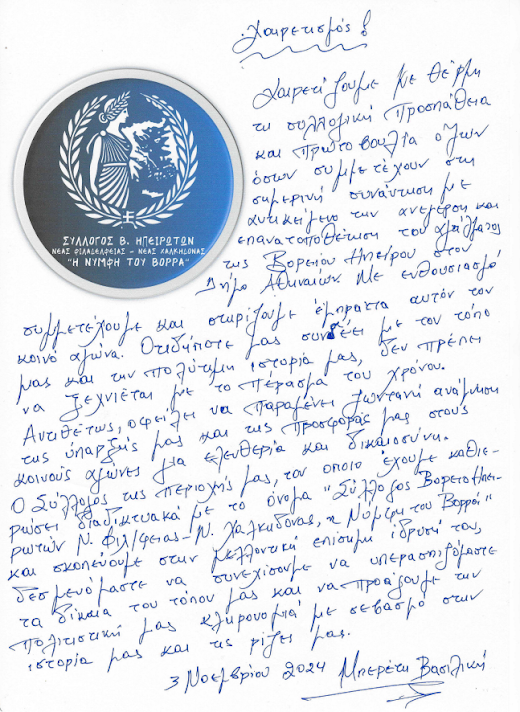 Χαιρετισμός!
Χαιρετίζουμε με θέρμη
τη συλλογική προσπάθεια
και πρωτοβουλία όλων
όσων συμμετέχουν στη
σημερινή συνάντηση με
αντικείμενο την ανέγερση και
επανατοποθέτηση του αγάλματος
της Βορείου Ηπείρου στον
Δήμο Αθηναίων. Με ενθουσιασμό
συμμετέχουμε και στηρίζουμε έμπρακτα αυτόν τον
κοινό αγώνα. Οτιδήποτε μας συνδέει με τον τόπο
μας και την πολύτιμη ιστορία μας, δεν πρέπει
να ξεχνιέται με το πέρασμα του χρόνου.
Αντιθέτως, οφείλει να παραμένει ζωντανή ανάμνηση
της ύπαρξής μας και της προσφοράς μας στους
κοινούς αγώνες για ελευθερία και δικαιοσύνη.
Ο Σύλλογος της περιοχής μας, τον οποίο έχουμε καθιε-
ρώσει διαδικτυακά με το όνομα "Σύλλογος Βορειοηπει-
ρωτών Ν. Φιλ/φειας-Ν. Χαλκηδόνας, η Νύμφη του Βορρά"
και σκοπεύουμε στην μελλοντική επίσημη ίδρυσή του,
δεσμευόμαστε να συνεχίσουμε να υπερασπιζόμαστε
τα δίκαια του τόπου μας και να προάγουμε την
πολιτιστική μας κληρονομιά με σεβασμό στην
ιστορία μας και τις ρίζες μας.
3 Νοεμβρίου 2024 Μπερέτη Βασιλική
ΣΥΛΛΟΓΟΣ Β. ΗΠΕΙΡΩΤΩΝ
ΝΕΑΣ ΦΙΛΑΔΕΛΦΕΙΑΣ - ΝΕΑΣ ΧΑΛΚΗΔΟΝΑΣ
"Η ΝΥΜΦΗ ΤΟΥ ΒΟΡΡΑ"